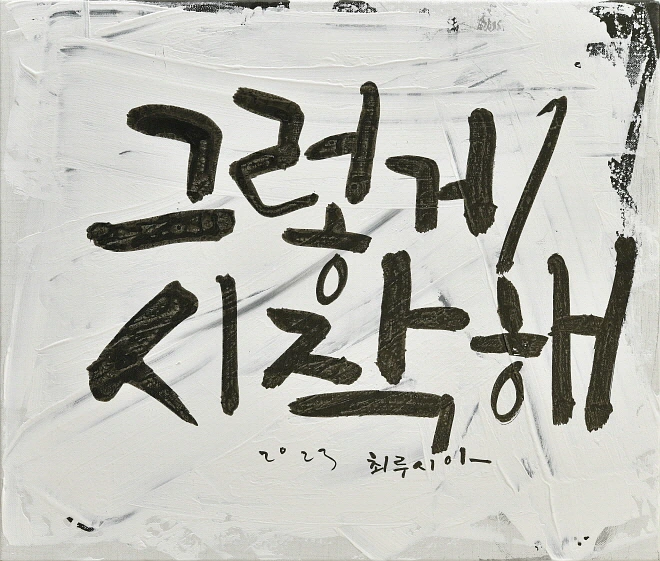 그렇게
시작해
2023 최루시아